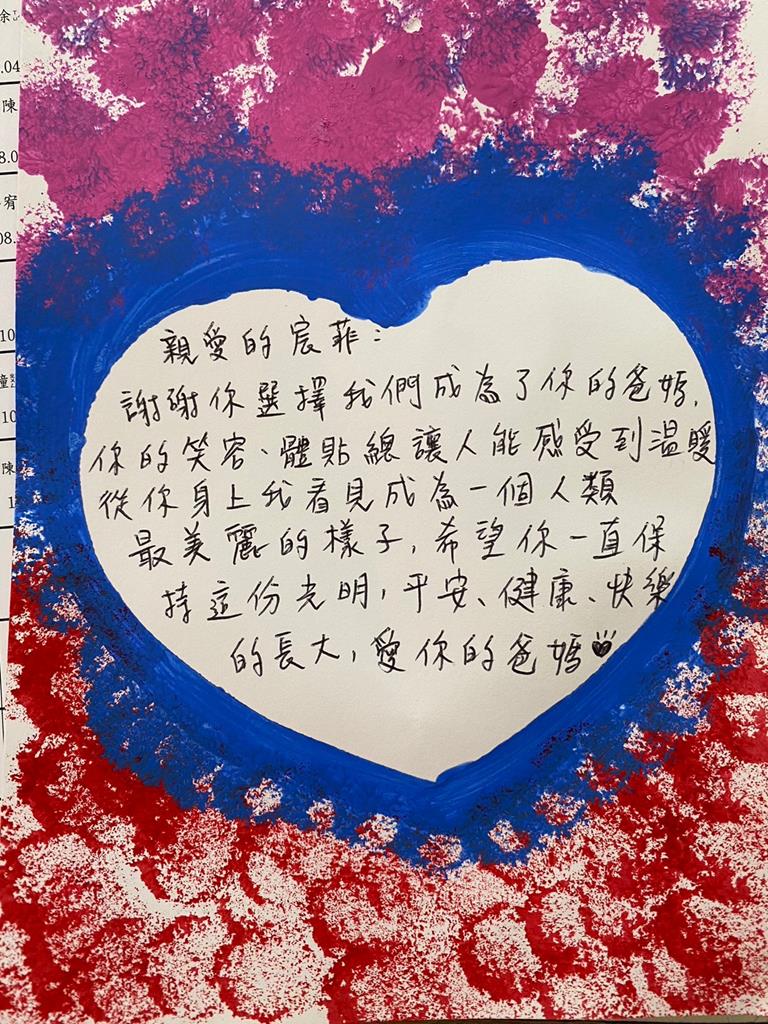 余
.04
陳
8.0
宥
08.
10
童
10
陳
1
親愛的宸菲:
謝謝你選擇我們成為了你的爸媽,
你的笑容、體貼總讓人能感受到溫暖
從你身上我看見成為一個人類
最美麗的樣子,希望你一直保
持這份光明,平安、健康、快樂
的長大,愛你的爸媽